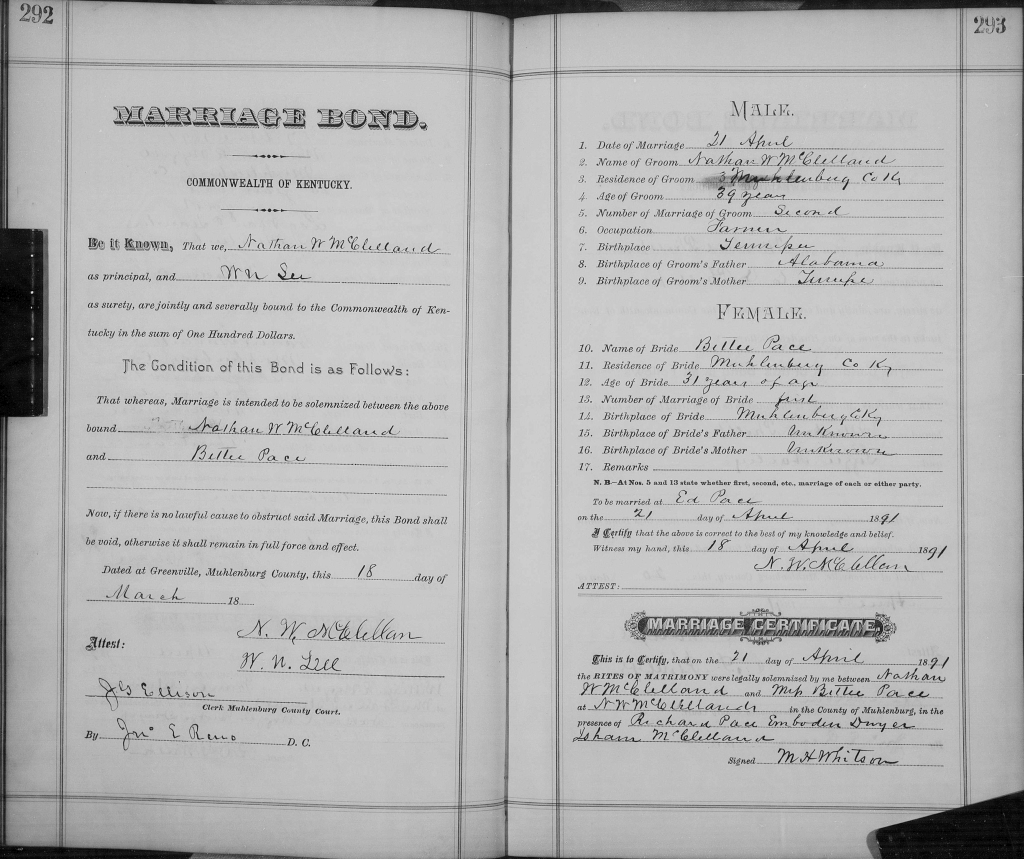 292
MARRIAGE BOND.
COMMONWEALTH OF KENTUCKY.
Be it Known, That we, Nathan W McClelland
as principal, and W N
as surety, are jointly and severally bound to the Commonwealth of Ken-
tucky in the sum of One Hundred Dollars.
The Condition of this Bond is as Follows:
That whereas, Marriage is intended to be solemnized between the above
bound Nathan W McClelland
and Bettie Pace
Now, if there is no lawful cause to obstruct said Marriage, this Bond shall
be void, otherwise it shall remain in full force and effect.
Dated at Greenville, Muhlenburg County, this 18 day of
March 18
N. W. McClellan
Attest:
W. N.
J G Ellison
Clerk Muhlenburg County Court.
By Jno E Reno D. C.
293
MALE.
1. Date of Marriage 21 April
2. Name of Groom Nathan W McClelland
3. Residence of Groom Muhlenburg Co Ky
4 Age of Groom 39 years
5. Number of Marriage of Groom Second
6. Occupation Farmer
7. Birthplace
8. Birthplace of Groom's Father Alabama
9. Birthplace of Groom's Mother
FEMALE.
10. Name of Bride Bettie Pace
11. Residence of Bride Muhlenburg Co Ky
12. Age of Bride 31 years of age
13. Number of Marriage of Bride first
14. Birthplace of Bride Muhlenberg C Ky
15. Birthplace of Bride's Father Unknown
16. Birthplace of Bride's Mother Unknown
17. Remarks
N. B.—At Nos. 5 and 13 state whether first, second, etc., marriage of each or either party.
To be married at Ed Pace
on the 21 day of April 1891
I Certify that the above is correct to the best of my knowledge and belief.
Witness my hand, this 18 day of April 1891
N. W. McClellan
ATTEST:
MARRIAGE CERTIFICATE.
This is to Certify, that on the 21 day of April 1891
the RITES OF MATRIMONY were legally solemnized by me between Nathan
W McClelland and Miss Bettie Pace
at N W McClellands in the County of Muhlenburg, in the
presence of Richard Pace Emboden Dwyer
Isham McClelland
Signed M H Whitson